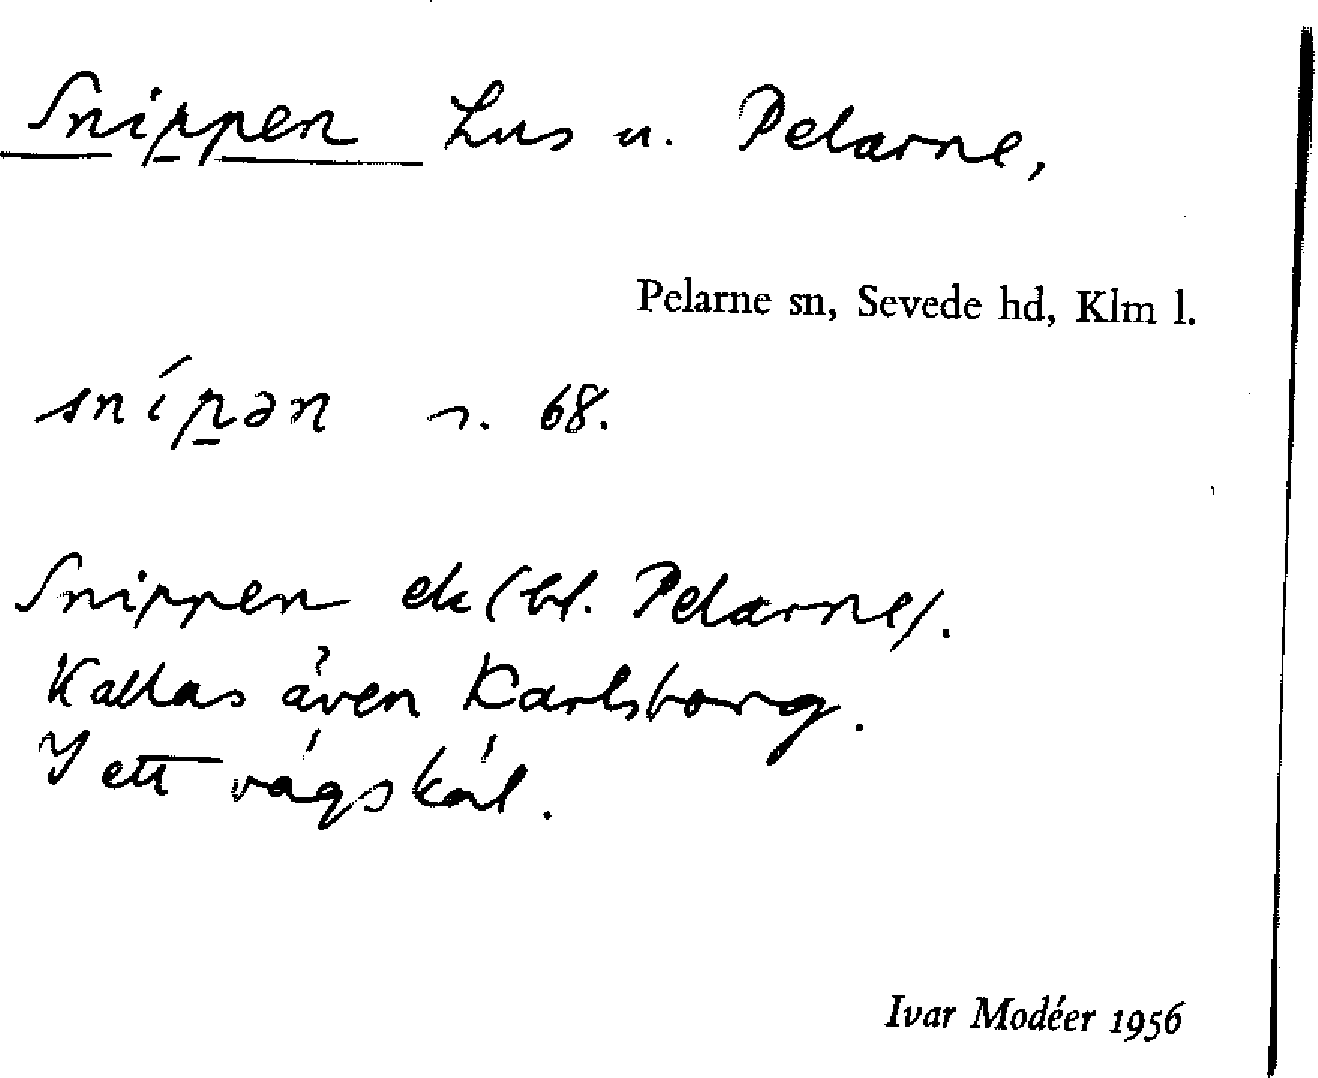 Snippen Lus u. Pelarne,
Pelarne sn, Sevede hd, Klm l.
snípən s. 68.
Snippen ek (bl. Pelarne).
Kallas även Karlsborg.
I ett vägskäl.
Ivar Modéer 1956